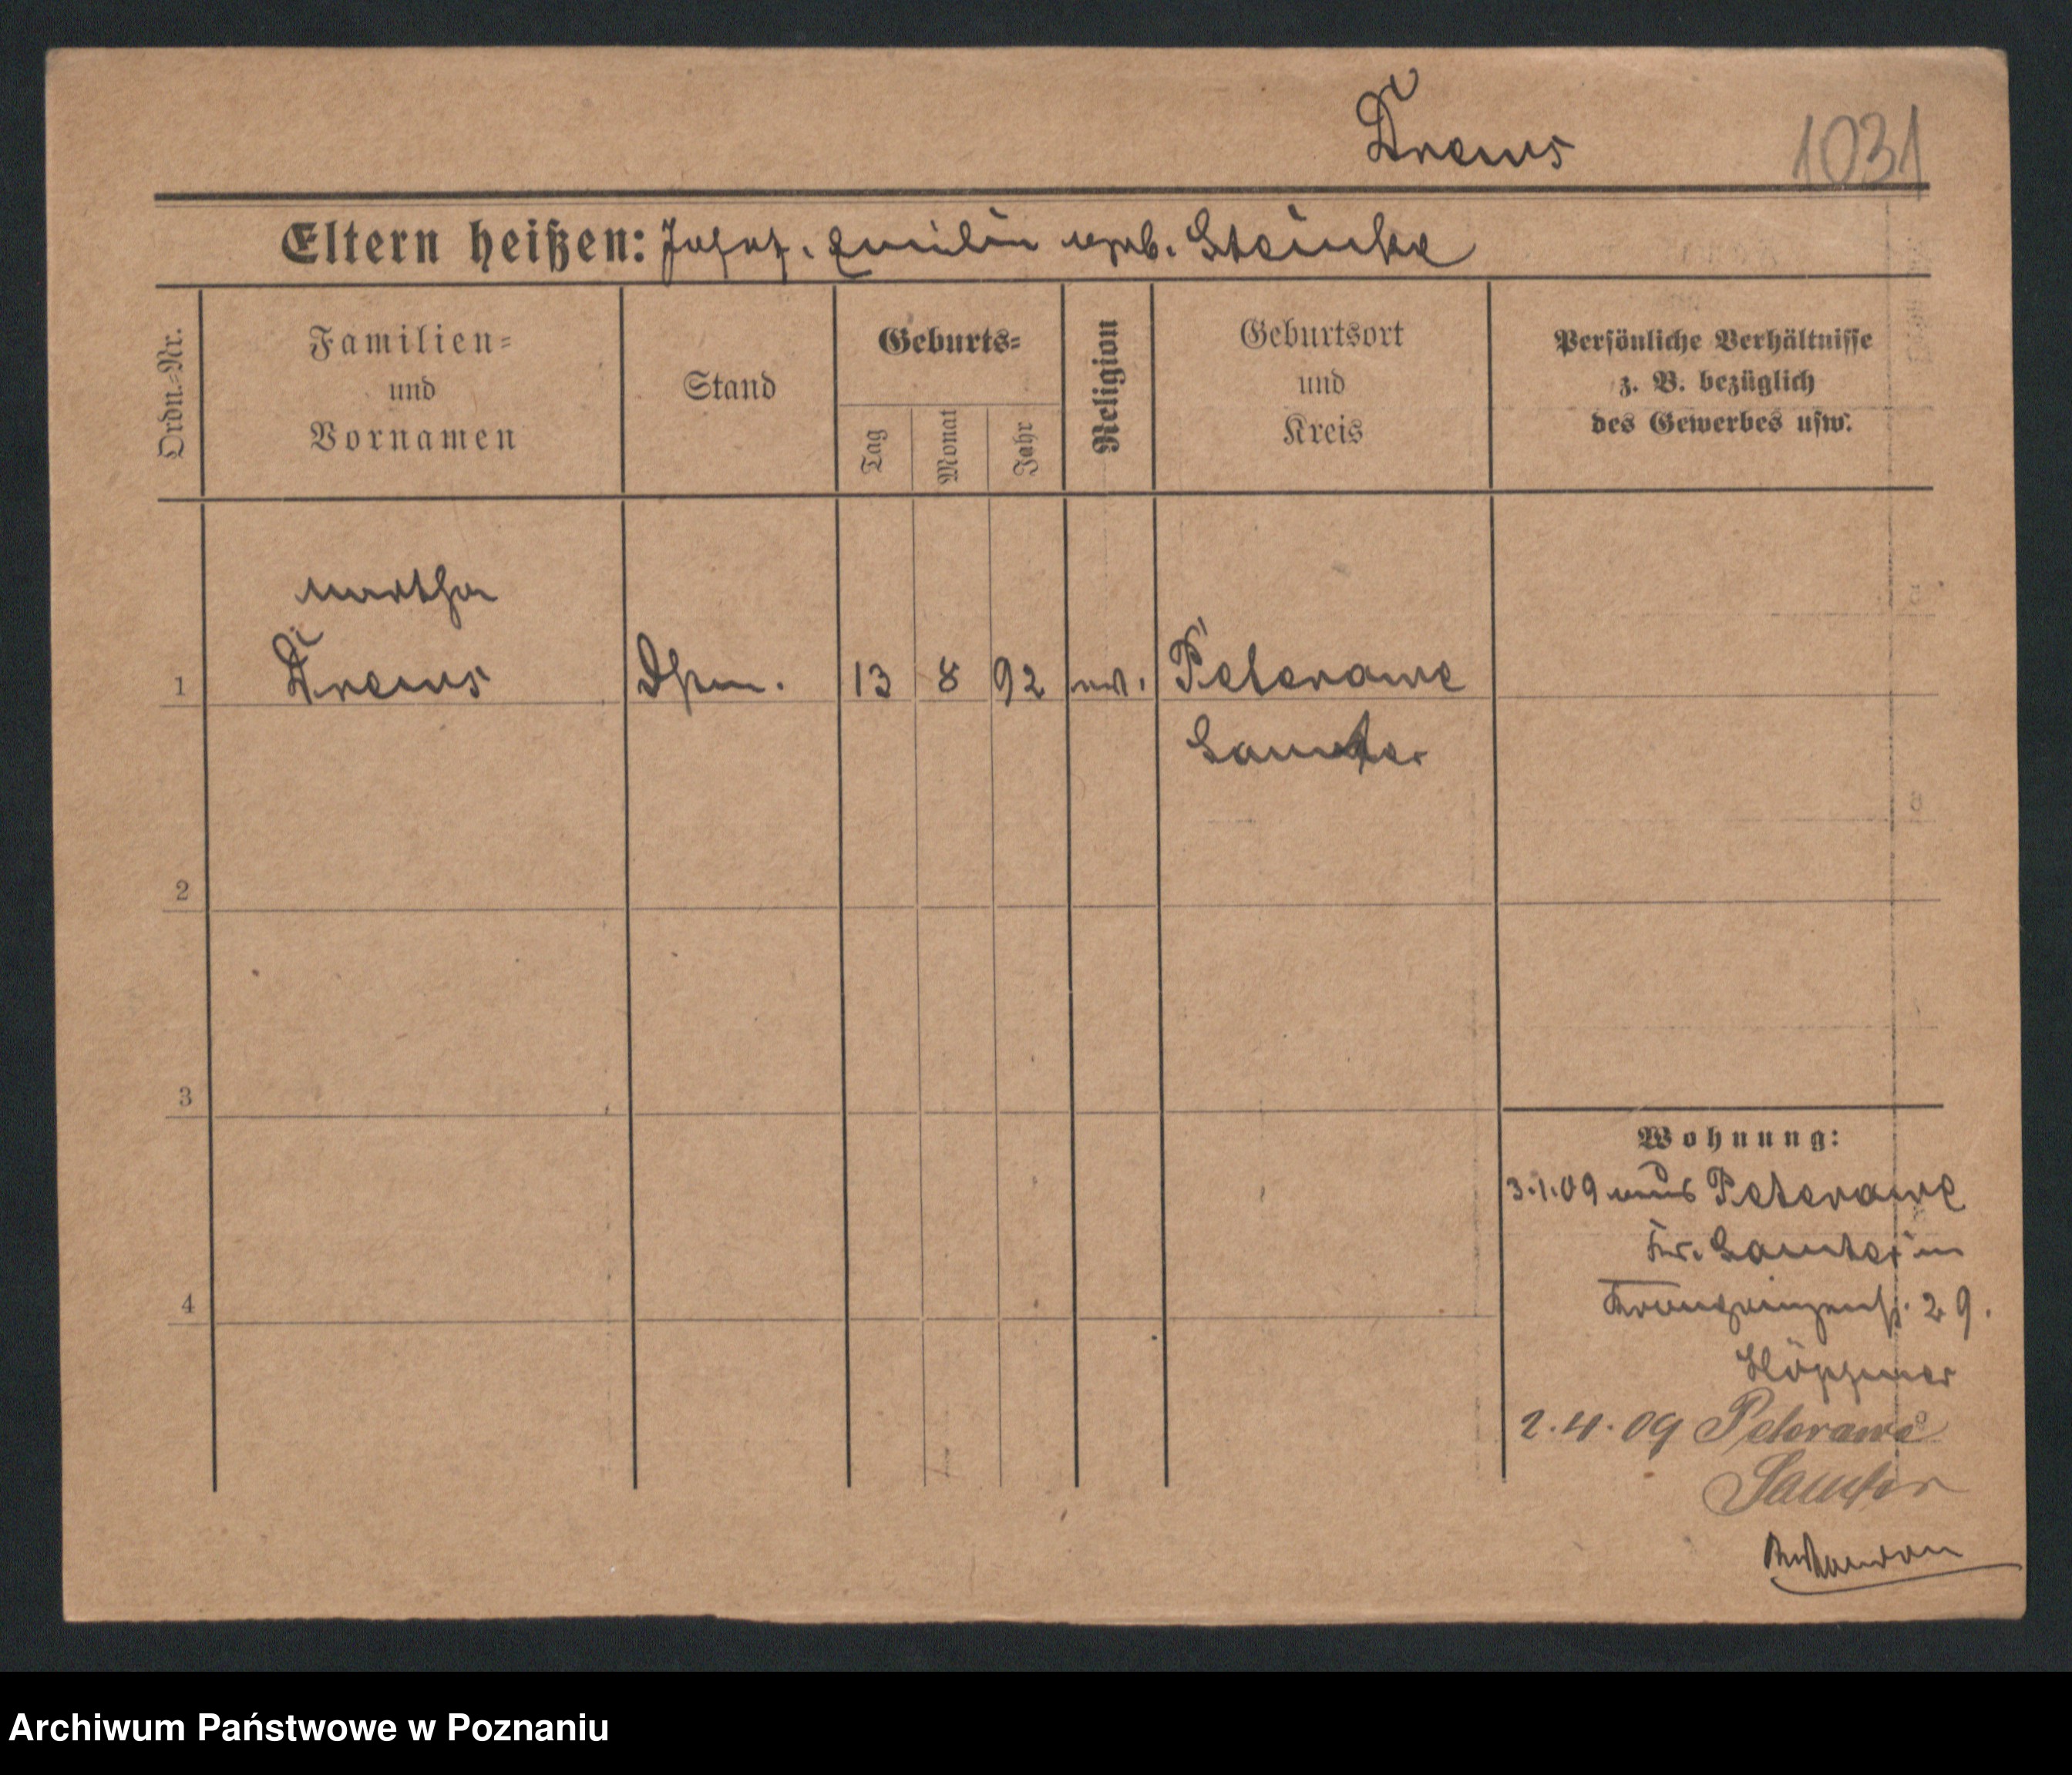 Drews
1031
Eltern heißen: Josef. Emilie geb. Steinke
Ordn.-Nr.
Familien- und Vornamen
Stand
Geburts-
Tag
Monat
Jahr
Religion
Geburtsort und Kreis
Persönliche Verhältnisse z. B. bezüglich des Gewerbes usw.
Martha
1 Drews 13 8 92 Peterawe
Samter
2
3
4
Wohnung:
3.1.09 aus Peterawe
Kr. Samter in
Kronprinzenst. 29.
Höppner
2.4.09 Peterawe
Samter
Archiwum Państwowe w Poznaniu